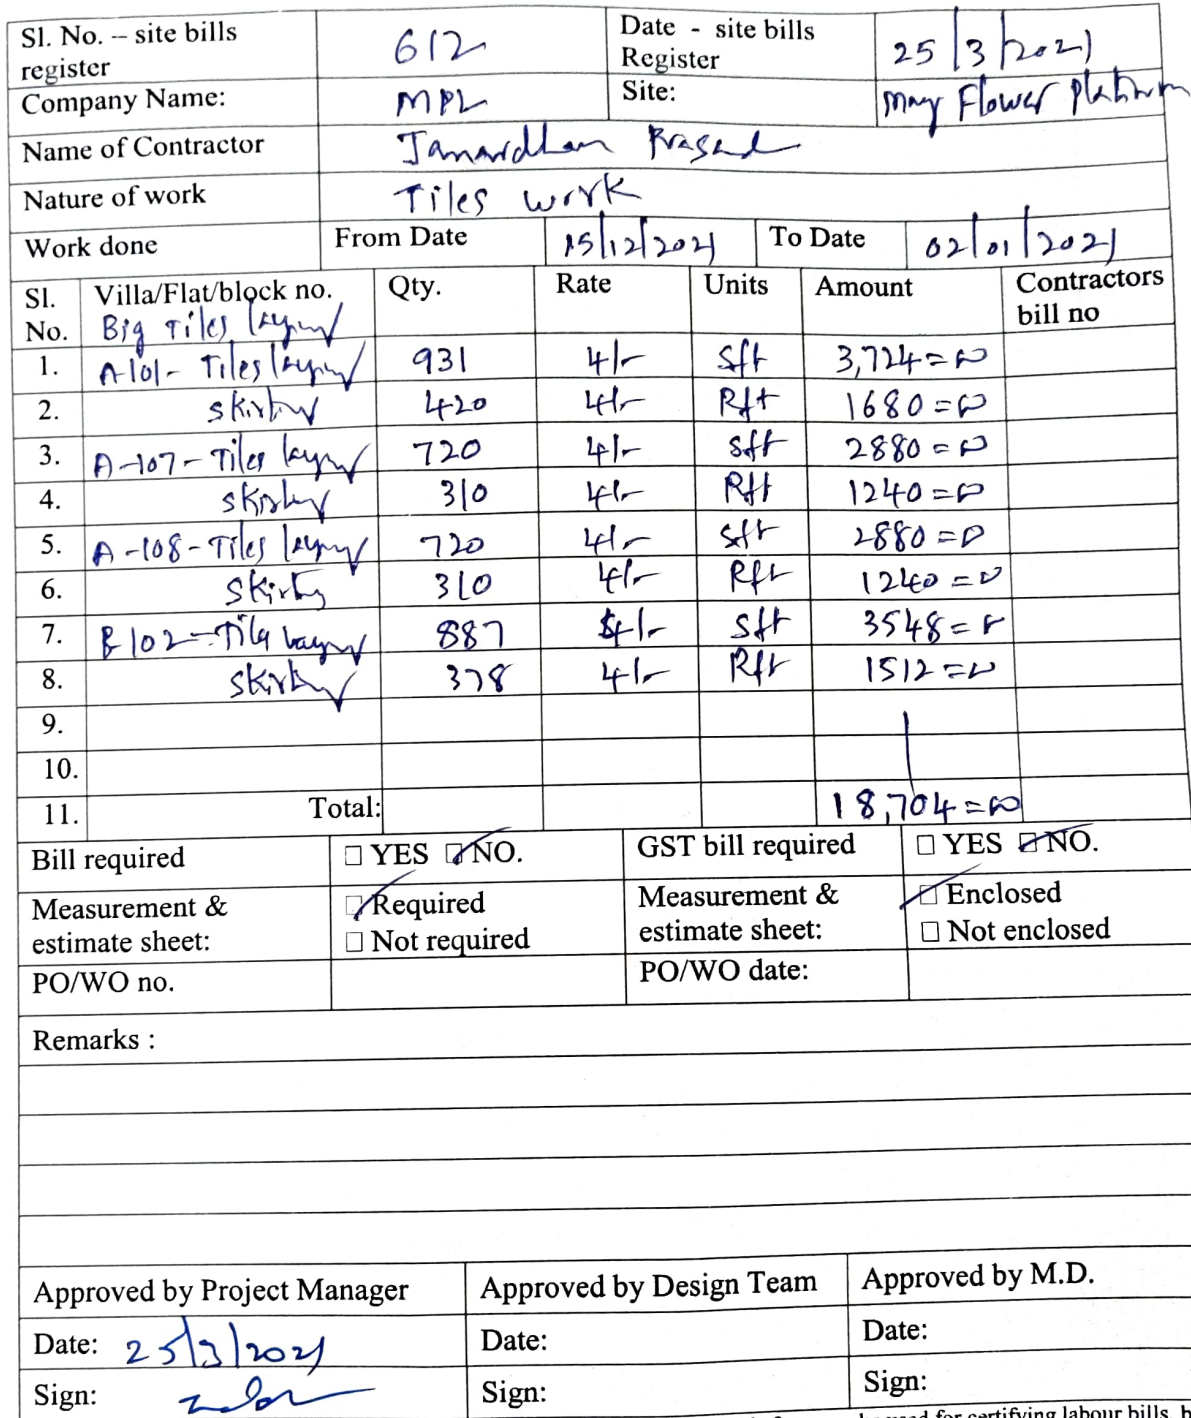 Sl. No. – site bills register 612 Date - site bills Register 25/3/2021
Company Name: MPL Site: May Flower Platinum
Name of Contractor Janardhan Prasad
Nature of work Tiles work
Work done From Date 15/12/2021 To Date 02/01/2021
Sl. No. Villa/Flat/block no. Qty. Rate Units Amount Contractors bill no
Big Tiles laying
1. A-101- Tiles laying 931 4/- Sft 3,724=00
2. skirting 420 4/- Rft 1680=00
3. A-107- Tiles laying 720 4/- sft 2880=00
4. skirting 310 4/- Rft 1240=00
5. A-108- Tiles laying 720 4/- sft 2880=00
6. skirting 310 4/- Rft 1240=00
7. B102- Tile laying 887 4/- sft 3548=00
8. skirting 378 4/- Rft 1512=00
9.
10.
11. Total: 18,704=00
Bill required □ YES □ NO. GST bill required □ YES □ NO.
Measurement & estimate sheet: □ Required □ Not required Measurement & estimate sheet: □ Enclosed □ Not enclosed
PO/WO no. PO/WO date:
Remarks :
Approved by Project Manager Approved by Design Team Approved by M.D.
Date: 25/3/2021 Date: Date:
Sign: Sign: Sign:
used for certifying labour bills,